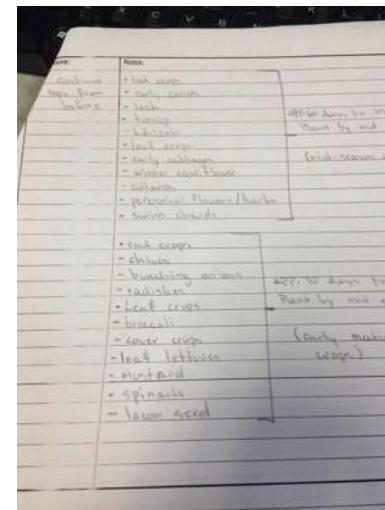 Notes:
continue
from
before
• root crops
- early carrots
- leek
- turnip
- kohlrabi
• leaf crops
- early cabbages
- winter cauliflower
- collards
- perennial flowers/herbs
- swiss chards
Plant by mid
(mid-season
• root crops
- chives
- bunching onions
- radishes
• Leaf crops
- broccoli
- cover crops
- leaf lettuces
- mustard
- spinach
- lawn seed
app. 30 days
Plant by mid
(early
crops)